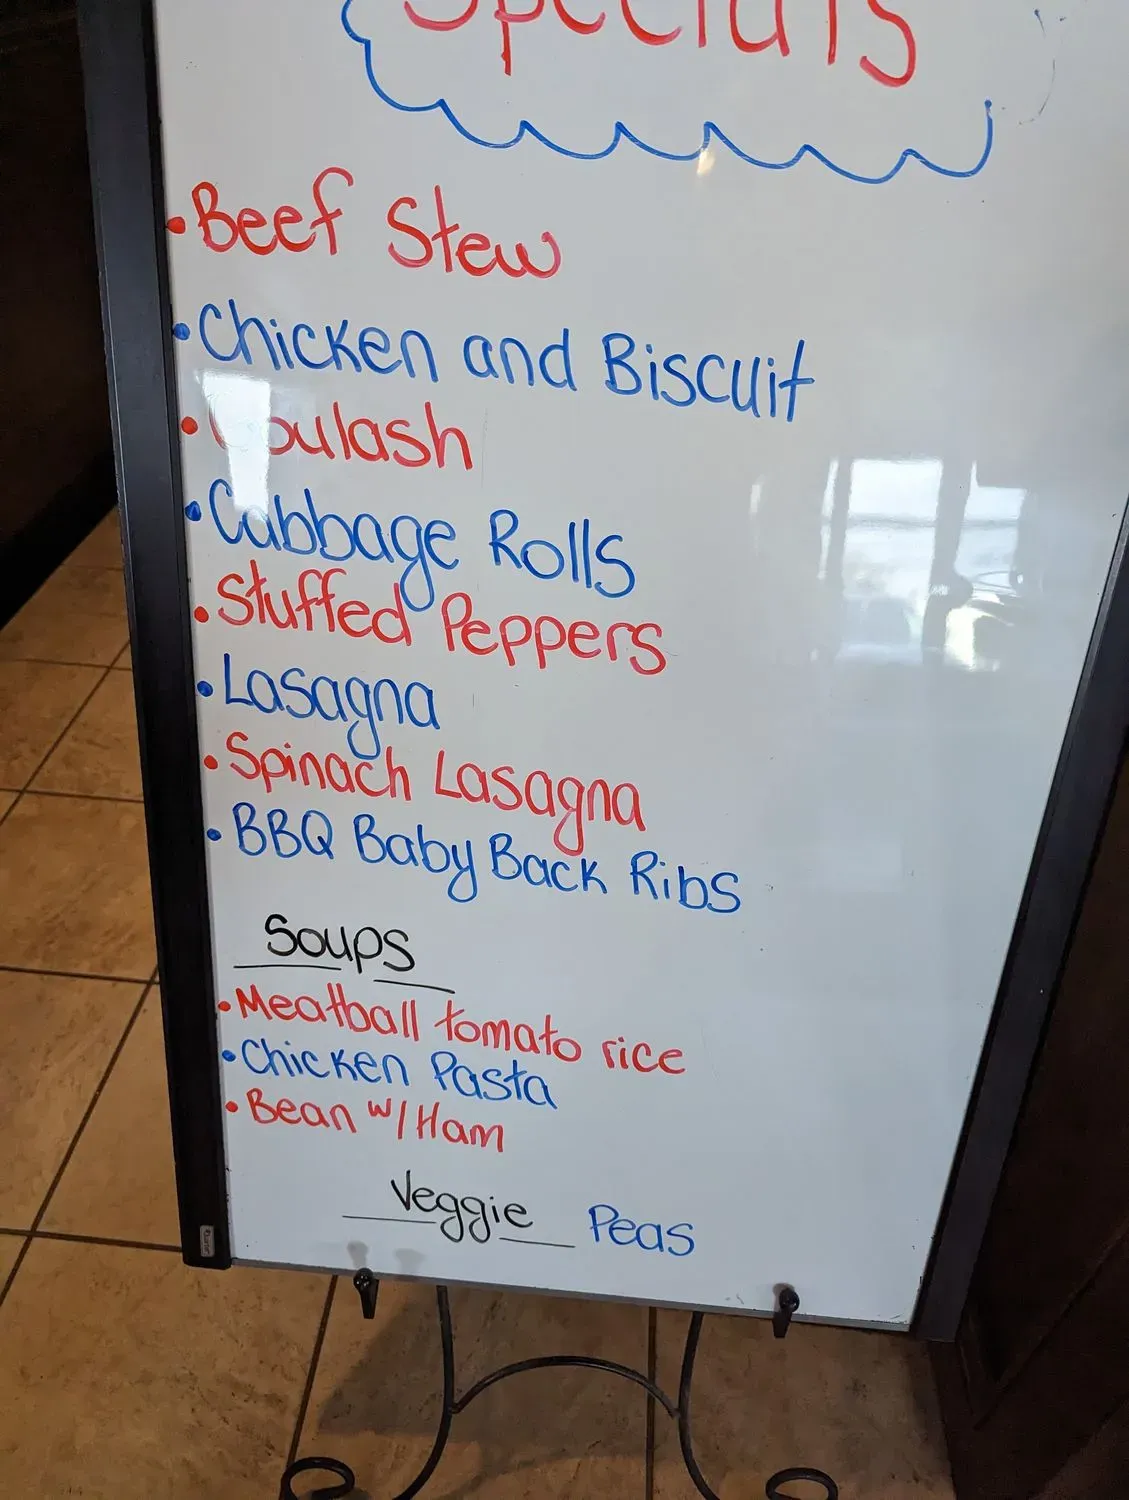 Specials
• Beef Stew
• Chicken and Biscuit
• Goulash
• Cabbage Rolls
• Stuffed Peppers
• Lasagna
• Spinach Lasagna
• BBQ Baby Back Ribs
Soups
• Meatball tomato rice
• Chicken Pasta
• Bean w/ Ham
Veggie Peas